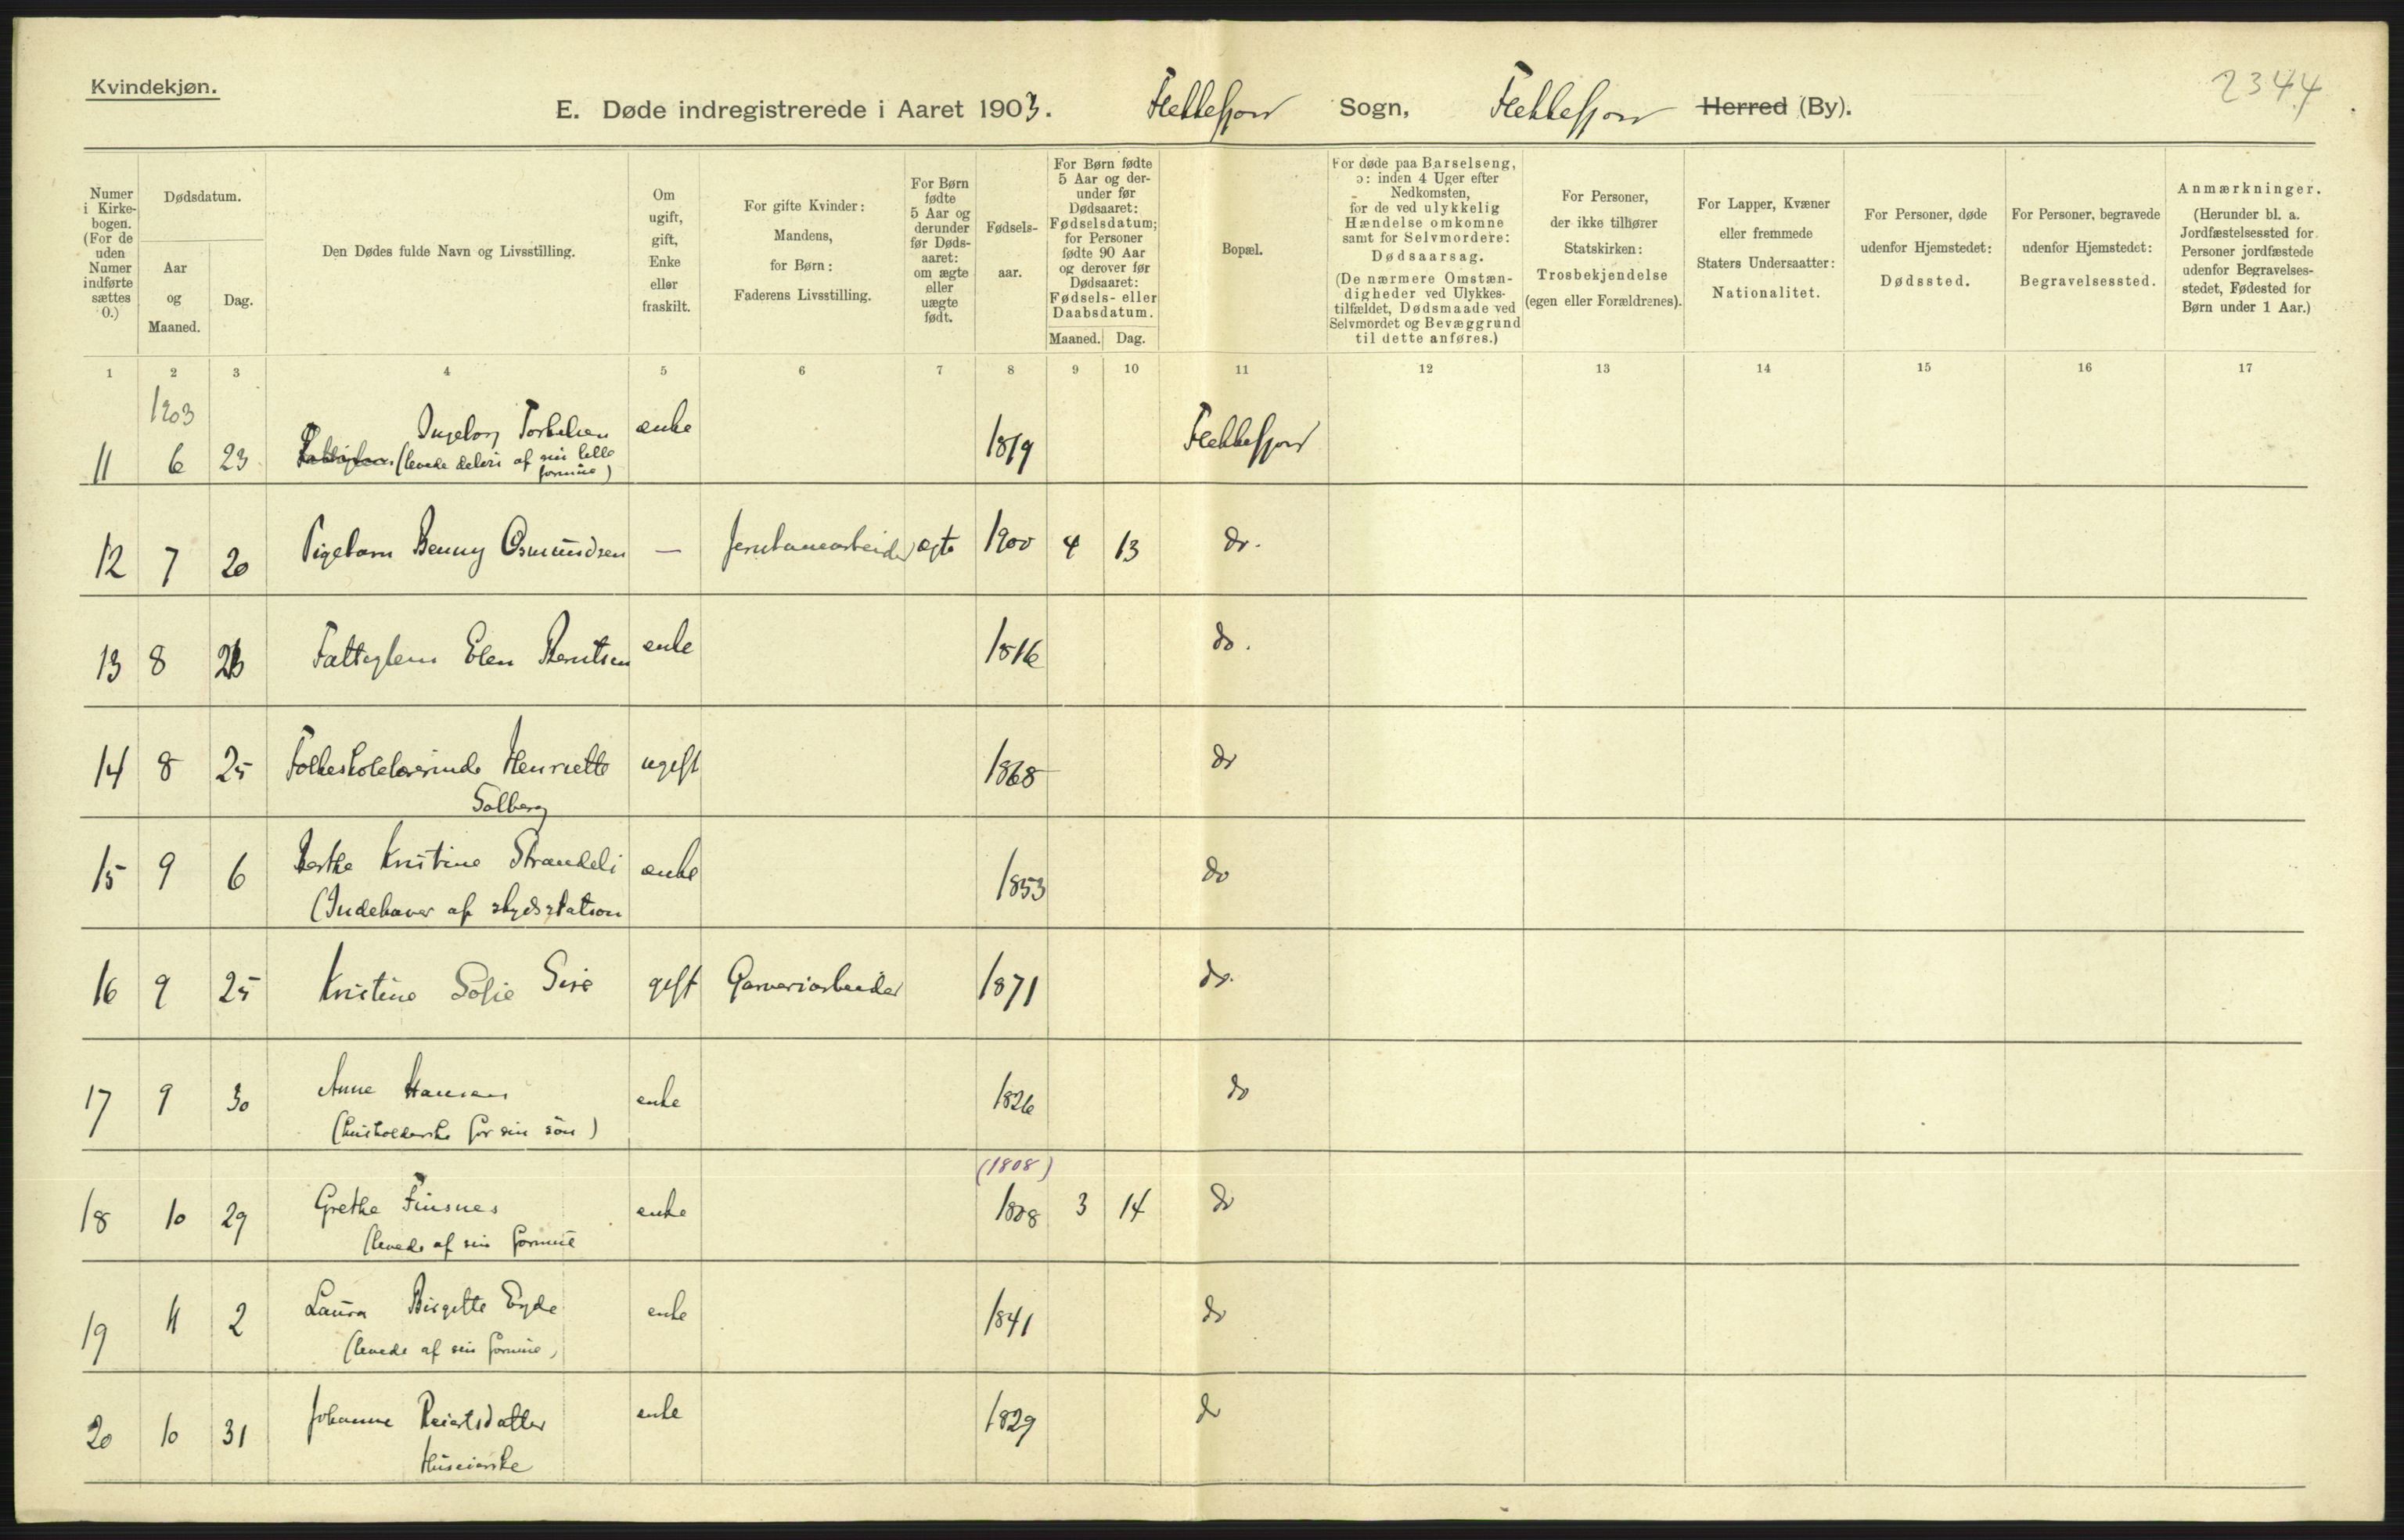 Kvindekjøn.
2344
E. Døde indregistrerede i Aaret 1903. Flekkefjord Sogn, Flekkefjord Herred (By).
Numer i Kirkebogen. (For de uden Numer indførte sættes 0.)
Dødsdatum.
Aar og Maaned.
Dag.
Den Dødes fulde Navn og Livsstilling.
Om ugift, gift, Enke eller fraskilt.
For gifte Kvinder: Mandens, for Børn: Faderens Livsstilling.
For Børn fødte 5 Aar og derunder før Dødsaaret: om ægte eller uægte født.
Fødselsaar.
For Børn fødte 5 Aar og derunder før Dødsaaret: Fødselsdatum; for Personer fødte 90 Aar og derover før Dødsaaret: Fødsels- eller Daabsdatum.
Maaned. Dag.
Bopæl.
For døde paa Barselseng, ɔ: inden 4 Uger efter Nedkomsten, for de ved ulykkelig Hændelse omkomne samt for Selvmordere: Dødsaarsag. (De nærmere Omstændigheder ved Ulykkestilfældet, Dødsmaade ved Selvmordet og Bevæggrund til dette anføres.)
For Personer, der ikke tilhører Statskirken: Trosbekjendelse (egen eller Forældrenes).
For Lapper, Kvæner eller fremmede Staters Undersaatter: Nationalitet.
For Personer, døde udenfor Hjemstedet: Dødssted.
For Personer, begravede udenfor Hjemstedet: Begravelsessted.
Anmærkninger. (Herunder bl. a. Jordfæstelsessted for Personer jordfæstede udenfor Begravelsesstedet, Fødested for Børn under 1 Aar.)
1 2 3 4 5 6 7 8 9 10 11 12 13 14 15 16 17
1903
11 6 23 Ingeborg Torkelsen enke 1819 Flekkefjord
(levede delvis af sin lille formue)
12 7 20 Pigebarn Benny Osmundsen — Jernbanearbeider ægte 1900 4 13 do.
13 8 23 Fattiglem Elen Berntsen enke 1816 do.
14 8 25 Folkeskolelærerinde Henriette ugift 1868 do
Solberg
15 9 6 Berthe Kristine Strandeli enke 1853 do
(Indehaver af skydsstation
16 9 25 Kristine Sofie Sire gift Garveriarbeider 1871 do.
17 9 30 Anne Hansen enke 1826 do
(husholderske for sin søn)
(1808)
18 10 29 Grethe Finsnes enke 1808 3 14 do
(levede af sin formue
19 11 2 Laura Birgitte Eyde enke 1841 do
(levede af sin formue)
20 10 31 Johanne Reiertsdatter enke 1829 do
Huseierske